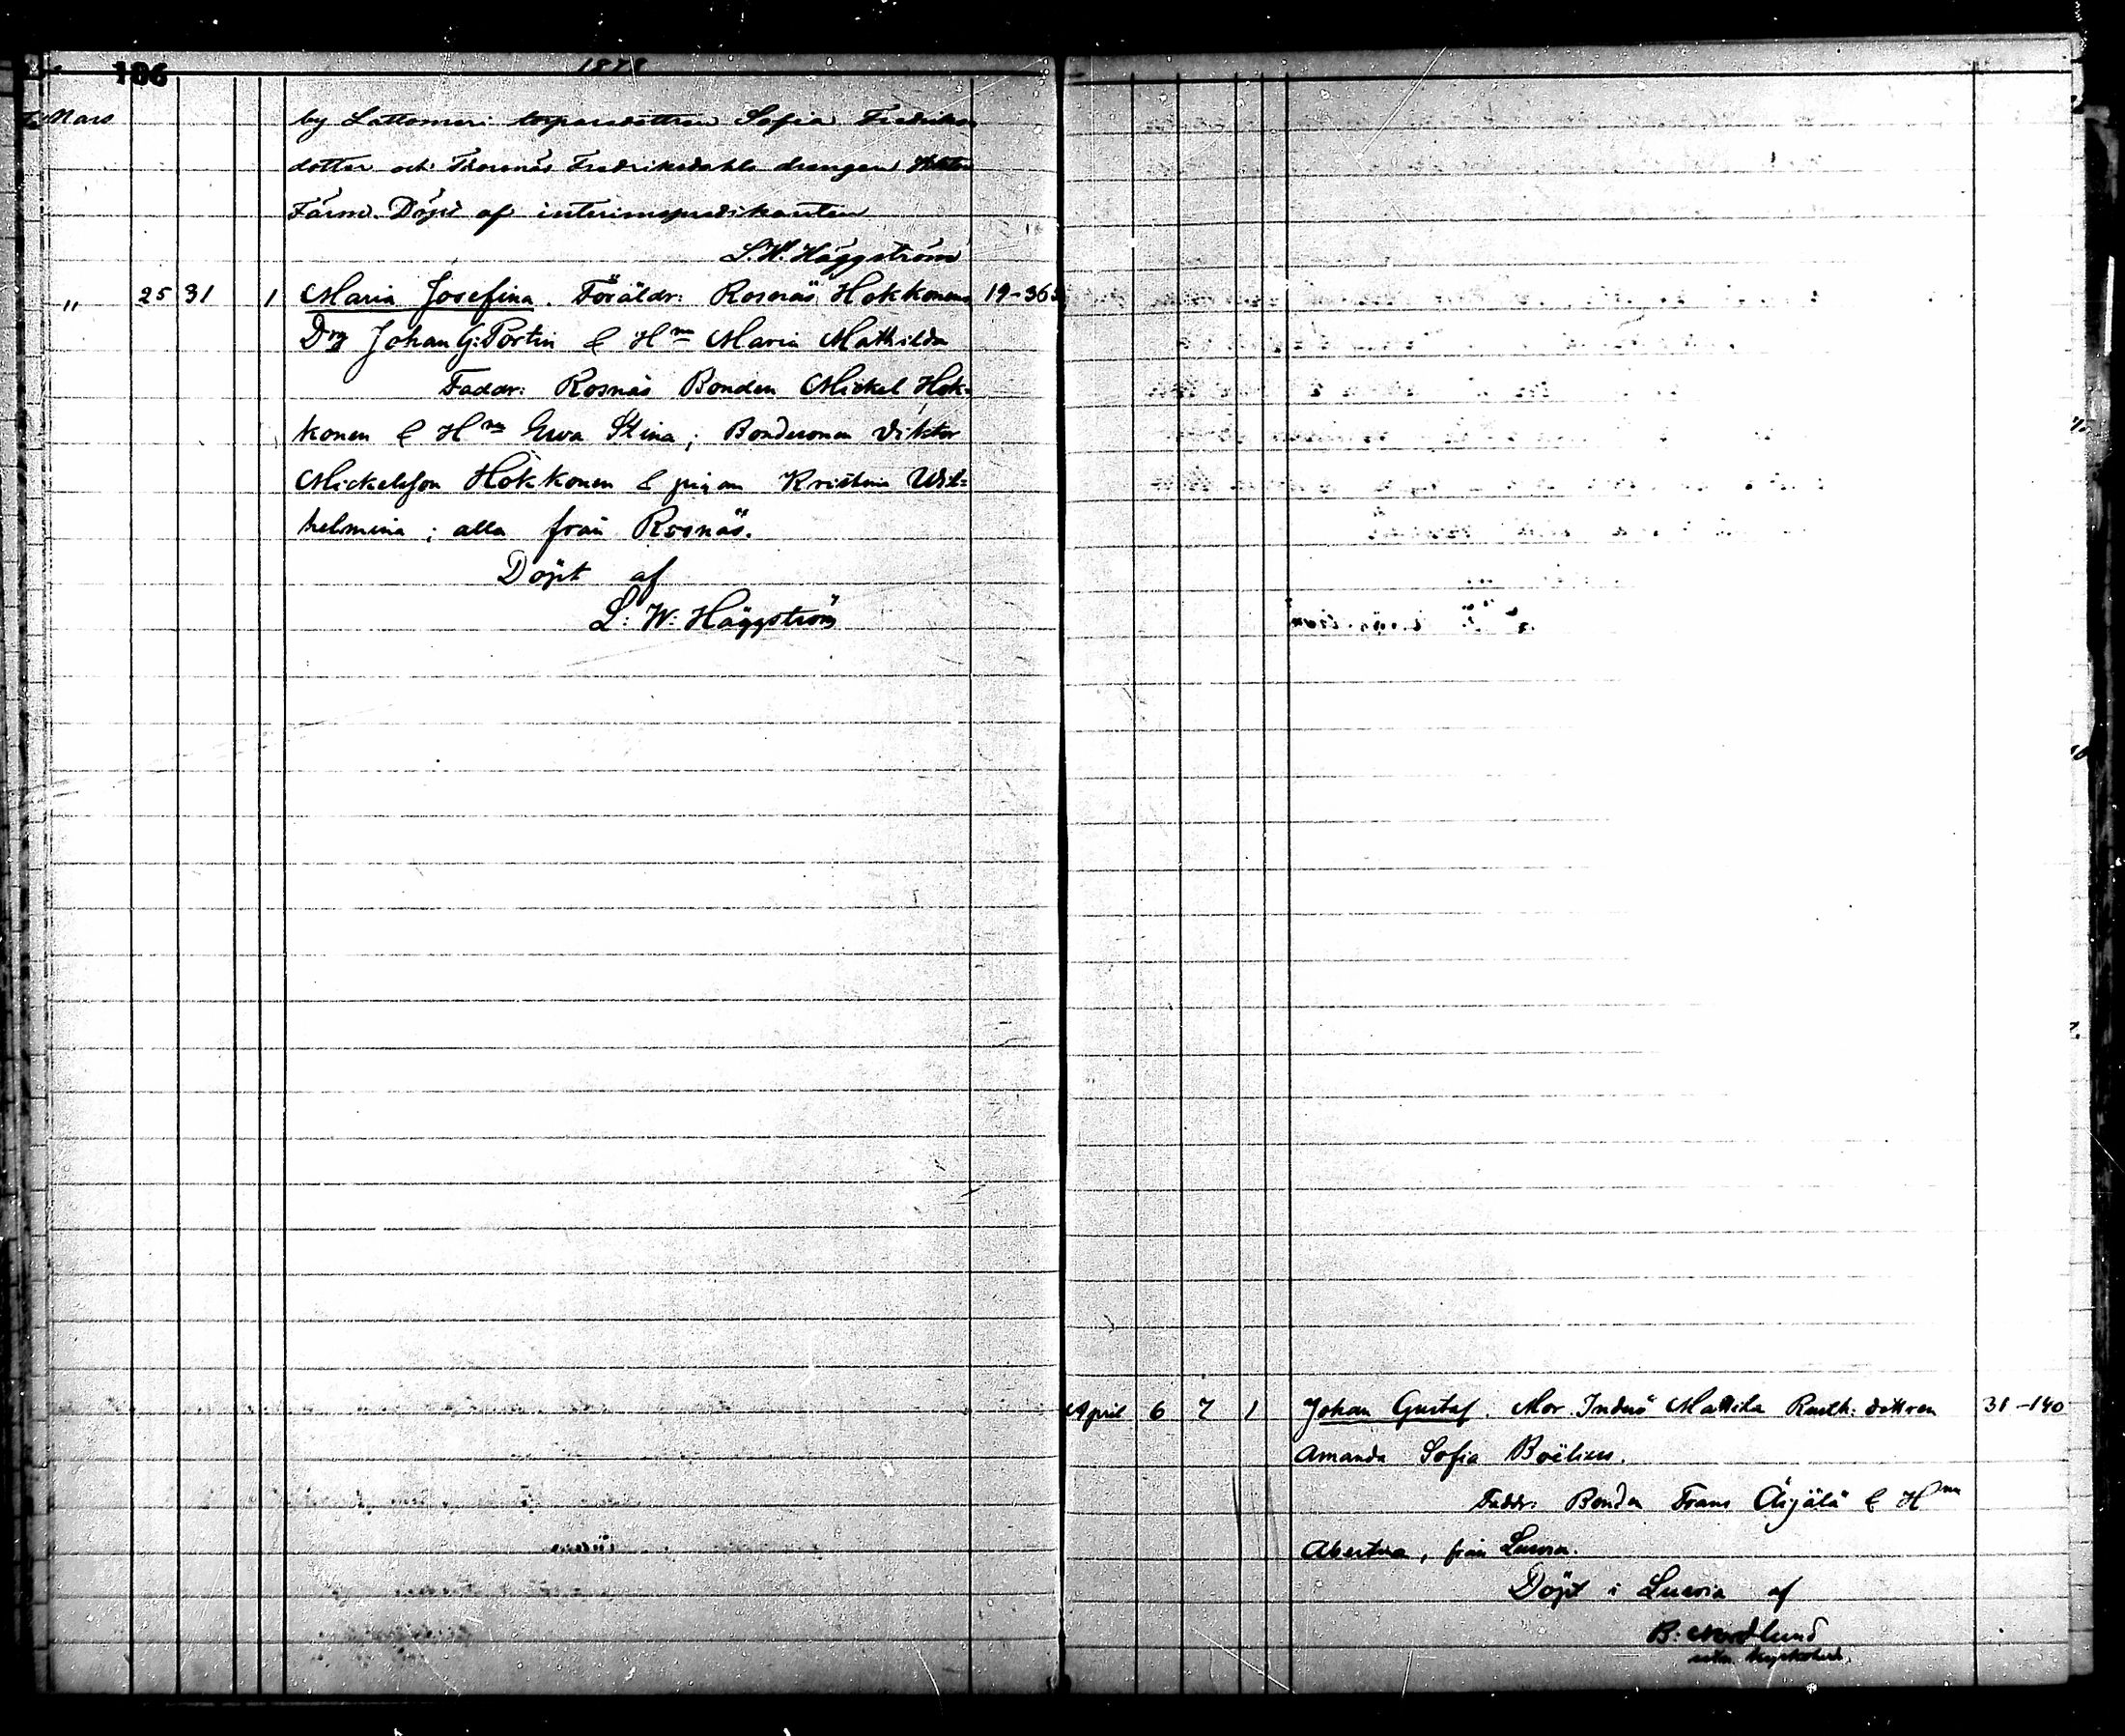 106
1878
Mars by Lattomeri torparedottren Sofia Fredriks
dotter och Thorsnäs Fredriksdahls drengen
Färm. Döpt af interimspredikanten
L. W. Häggström
" 25 31 1 Maria Josefina. Föräldr: Rosnäs Hokkonens 19-363
Drg Johan G: Portin & H:m Maria Mathilda
Faddr: Rosnäs Bonden Mickel Hok-
konen & H:m Ewa Stina; Bondesonen Viktor
Mickelsson Hokkonen & pigan Kristina Wil=
helmina; alla från Rosnäs.
Döpt af
L: W: Häggström
April 6 7 1 Johan Gustaf. Mor Inderö Mattila Rusth: dottren 31-140
Amanda Sofia Boëlius.
Faddr: Bonden Frans Äijälä & H:m
Abertina, från Luvia.
Döpt i Luvia af
B: Nordlund